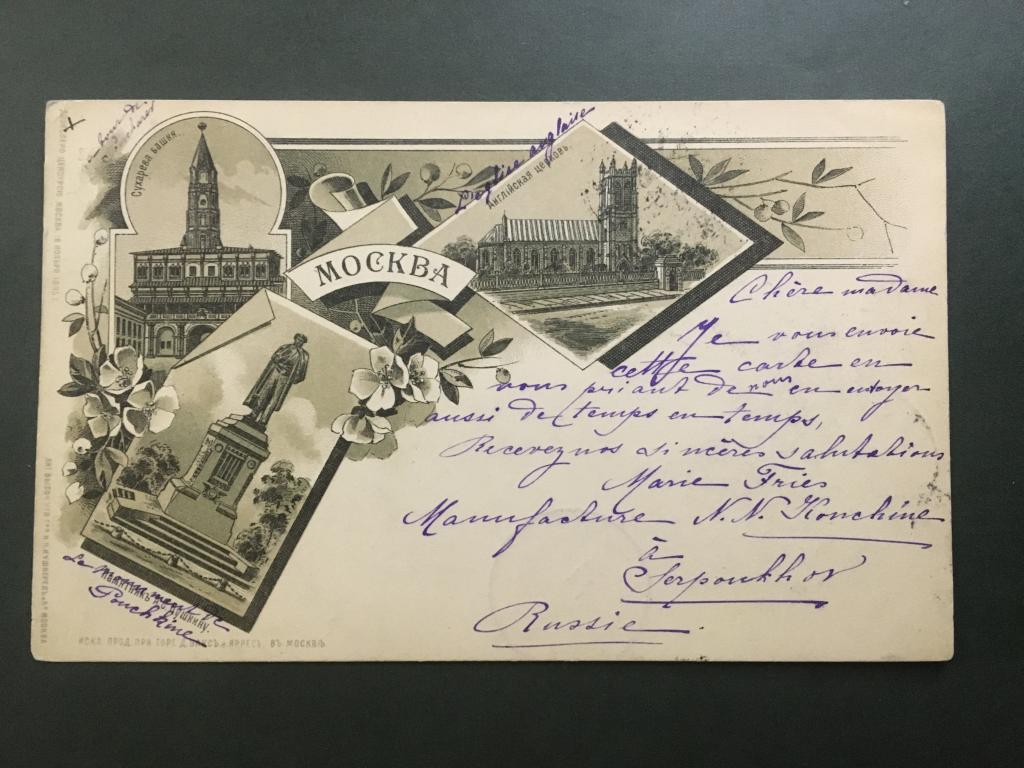 Сухарева башня.
L'église anglaise
Англійская церковь.
МОСКВА
Chère madame
Je vous envoie
cette carte en
vous priant de nous en envoyer
aussi de temps en temps,
Recevez nos sincères salutations
Marie Fries
Manufacture N. N. Konchine
à
Serpoukhov
Russie.
Памятникъ А. С. Пушкину.
Le monument de
Pouchkine
ИСКЛ. ПРОД. ПРИ ТОРГ. Д. ВЪ МОСКВѢ